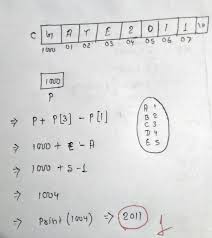 C G A T E 2 0 1 1 \0
1000 01 02 03 04 05 06 07
1000
P
⇒ P + P[3] - P[1]
⇒ 1000 + E - A
⇒ 1000 + 5 - 1
⇒ 1004
⇒ Print (1004) ⇒ 2011
A 1
B 2
C 3
D 4
E 5